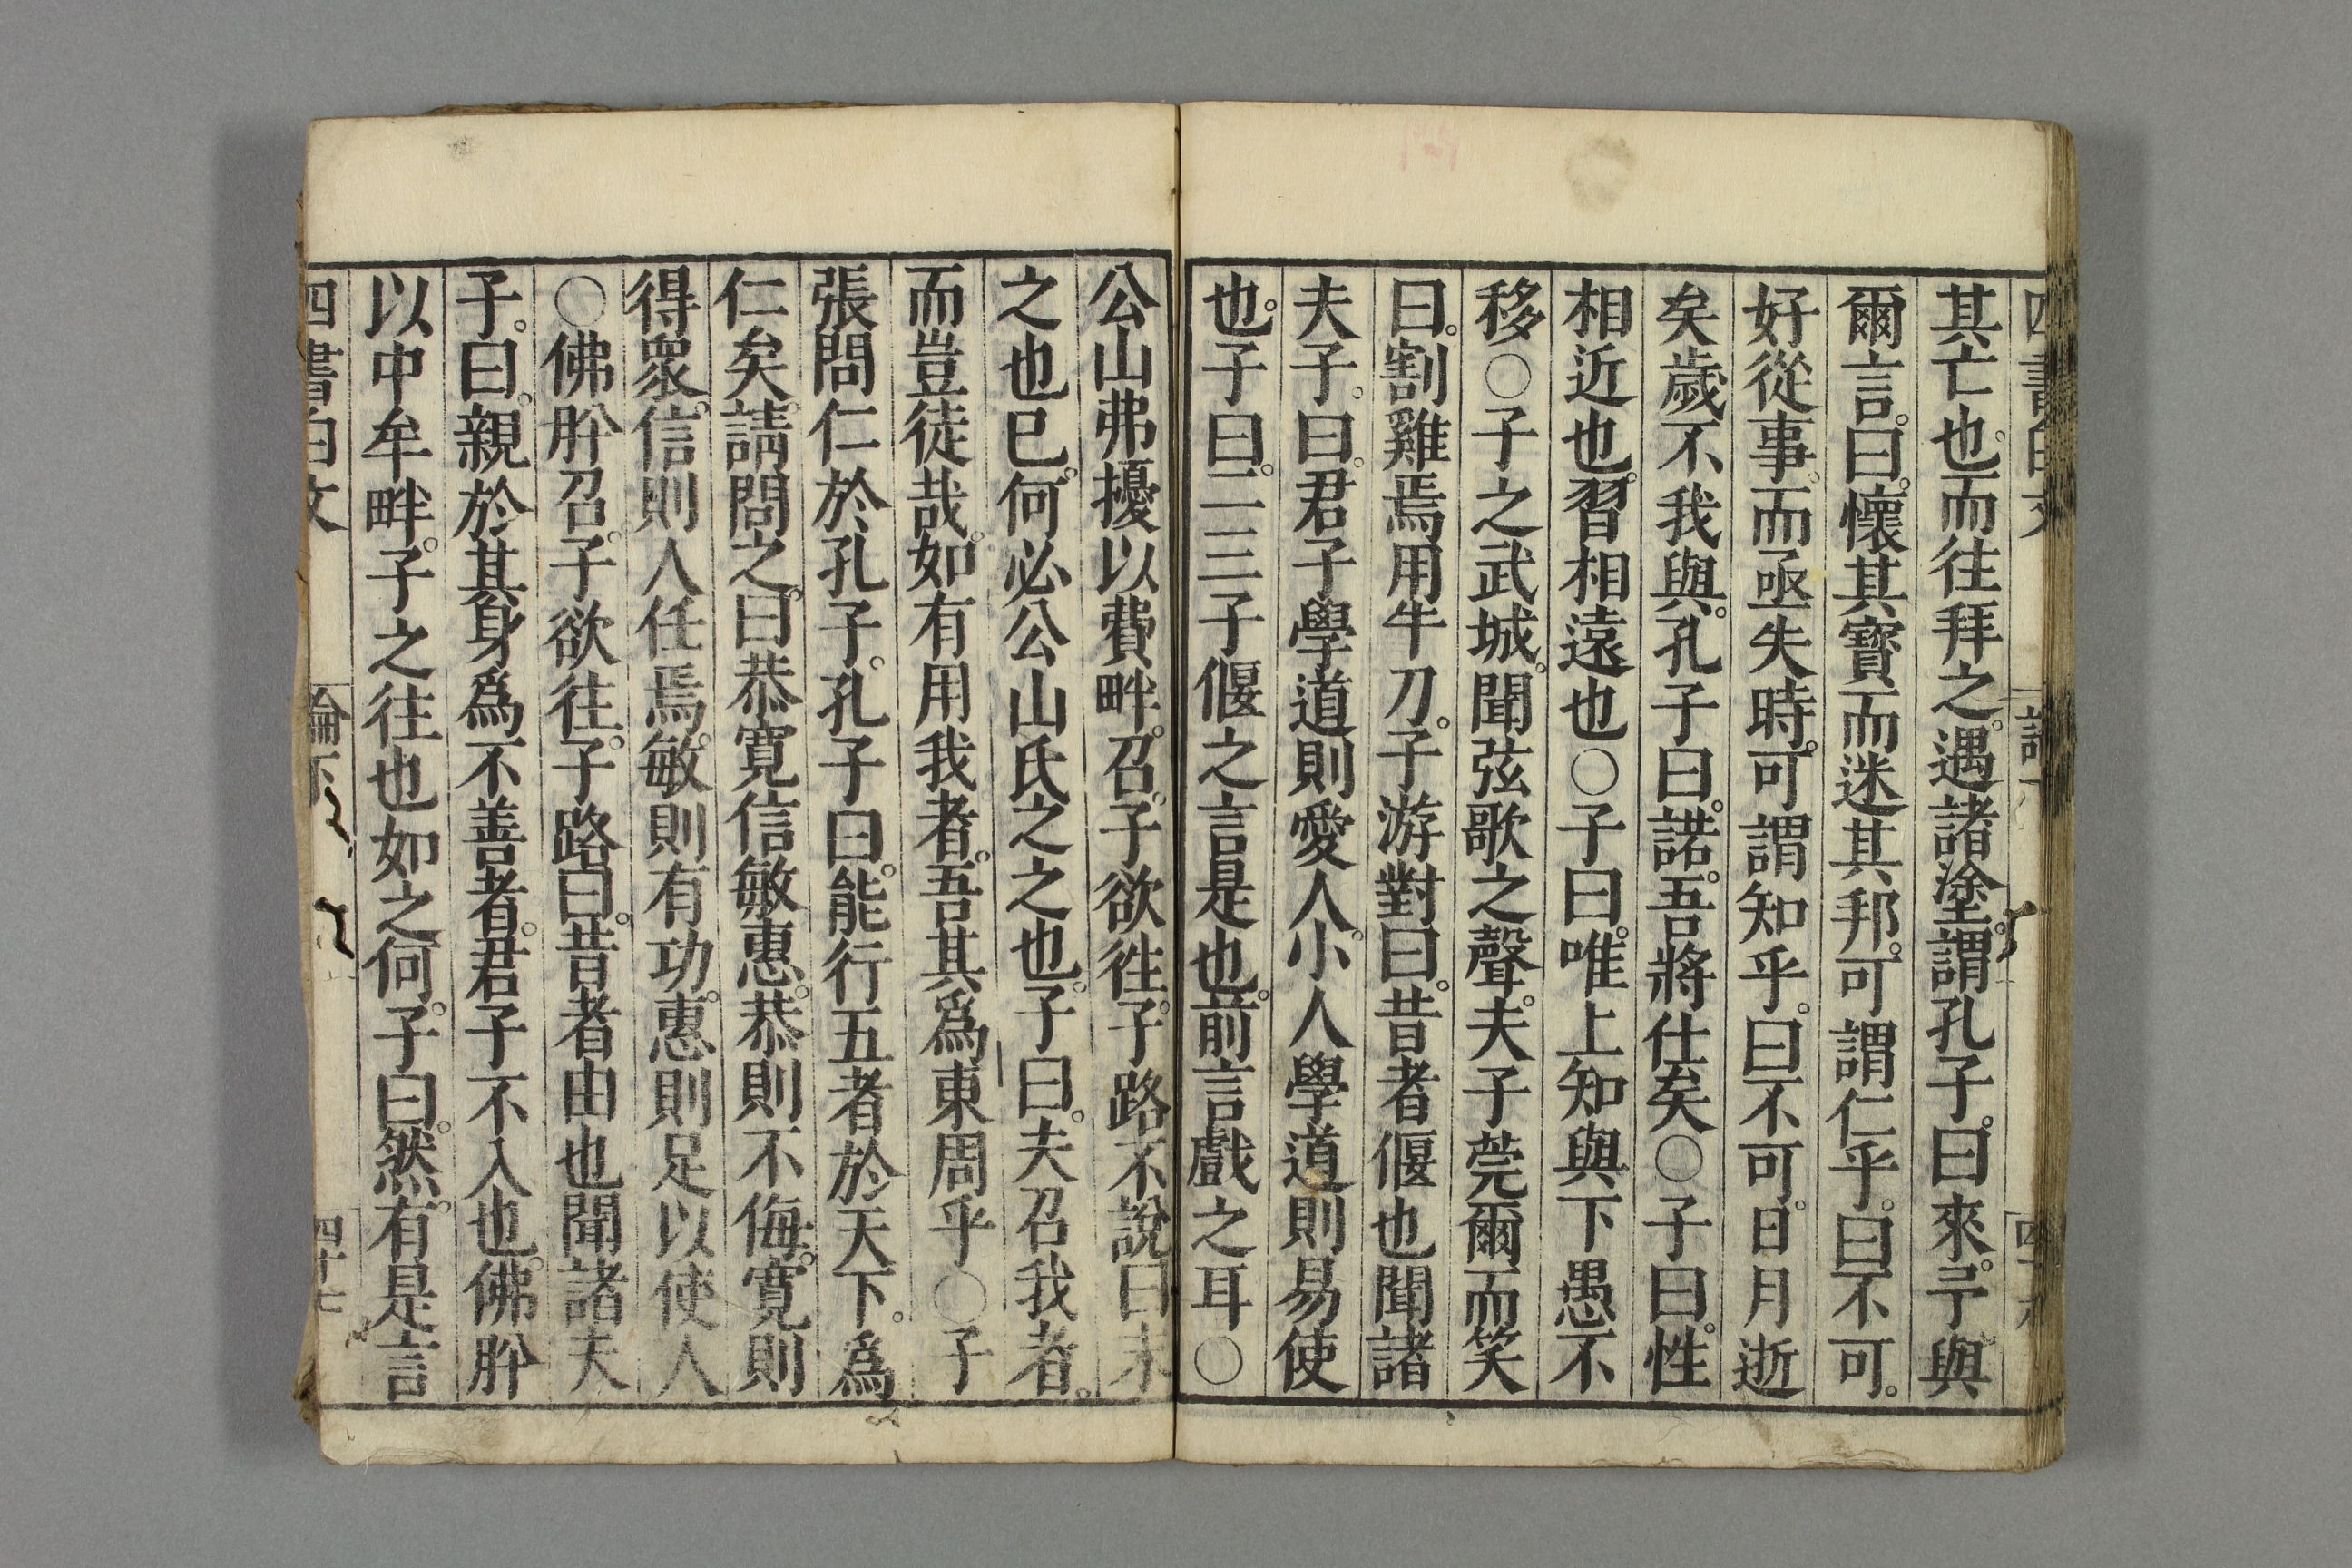 其亡也。而往拜之。遇諸塗。謂孔子。曰來。予與
爾言。曰。懷其寶而迷其邦。可謂仁乎。曰不可。
好從事。而亟失時。可謂知乎。曰不可。日月逝
矣歲不我與。孔子曰。諾。吾將仕矣○子曰。性
相近也。習相遠也○子曰。唯上知與下愚不
移○子之武城。聞弦歌之聲。夫子莞爾而笑
曰。割雞焉用牛刀。子游對曰。昔者偃也聞諸
夫子。曰。君子學道則愛人。小人學道則易使
也。子曰。二三子偃之言是也。前言戲之耳○
公山弗擾以費畔。召。子欲徃。子路不說曰末
之也已。何必公山氏之之也。子曰。夫召我者。
而豈徒哉。如有用我者。吾其爲東周乎○子
張問仁於孔子。孔子曰。能行五者於天下。爲
仁矣。請問之。曰恭寬信敏惠。恭則不侮。寬則
得衆。信則人任焉。敏則有功。惠則足以使人
○佛肸召。子欲往。子路曰。昔者由也聞諸夫
子。曰。親於其身爲不善者。君子不入也。佛肸
以中牟畔。子之往也如之何。子曰。然。有是言
四書白文 論下 四十七